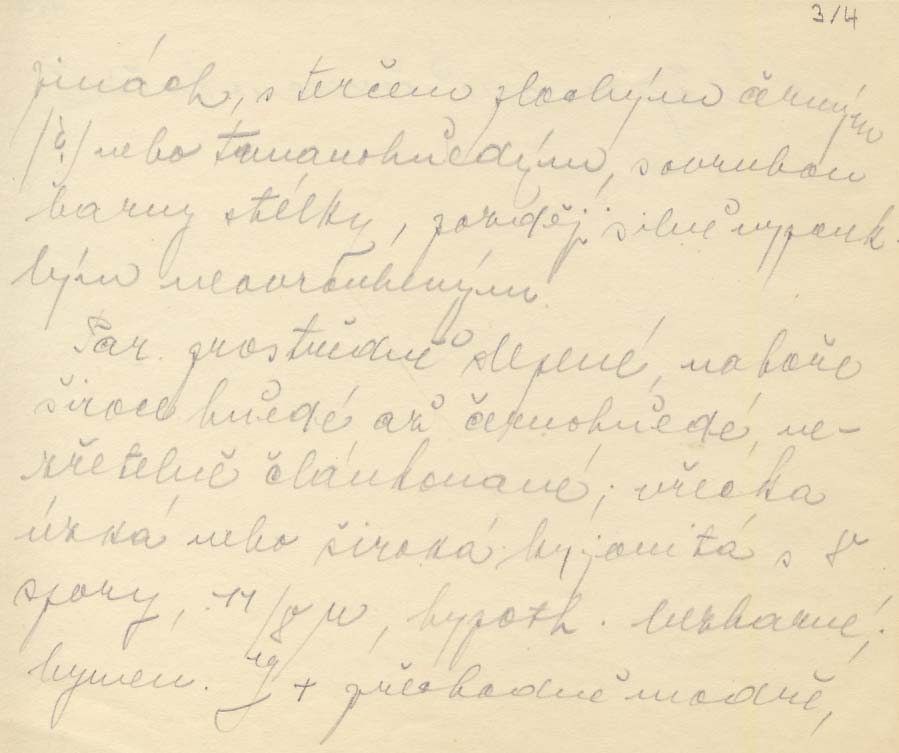 3/4
zinách, s terčem plochým černým
/č./ nebo tmavohnědým, s ovrubou
barvy stélky, později silně vypouk-
lým neovroubeným.
Par. prostředně slepené, nahoře
široce hnědé až černohnědé, ne-
zřetelně článkované; vřecka
úzká nebo široká kyjovitá s 8
spory, 11/8 μ, hypoth. bezbarvé;
hymen. J + přechodně modře,